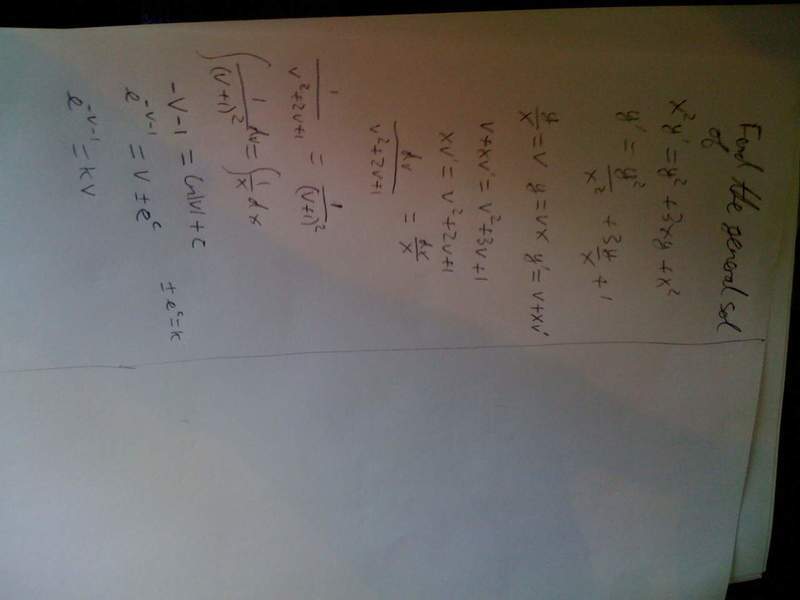 Find the general sol
of
x²y' = y² + 3xy + x²
y' = y²/x² + 3y/x + 1
y/x = v y = vx y' = v + xv'
v + xv' = v² + 3v + 1
xv' = v² + 2v + 1
dv/(v² + 2v + 1) = dx/x
1/(v² + 2v + 1) = 1/(v+1)²
∫ 1/(v+1)² dv = ∫ 1/x dx
-v - 1 = ln|v| + c
e^(-v-1) = v ± e^c ± e^c = k
e^(-v-1) = kv